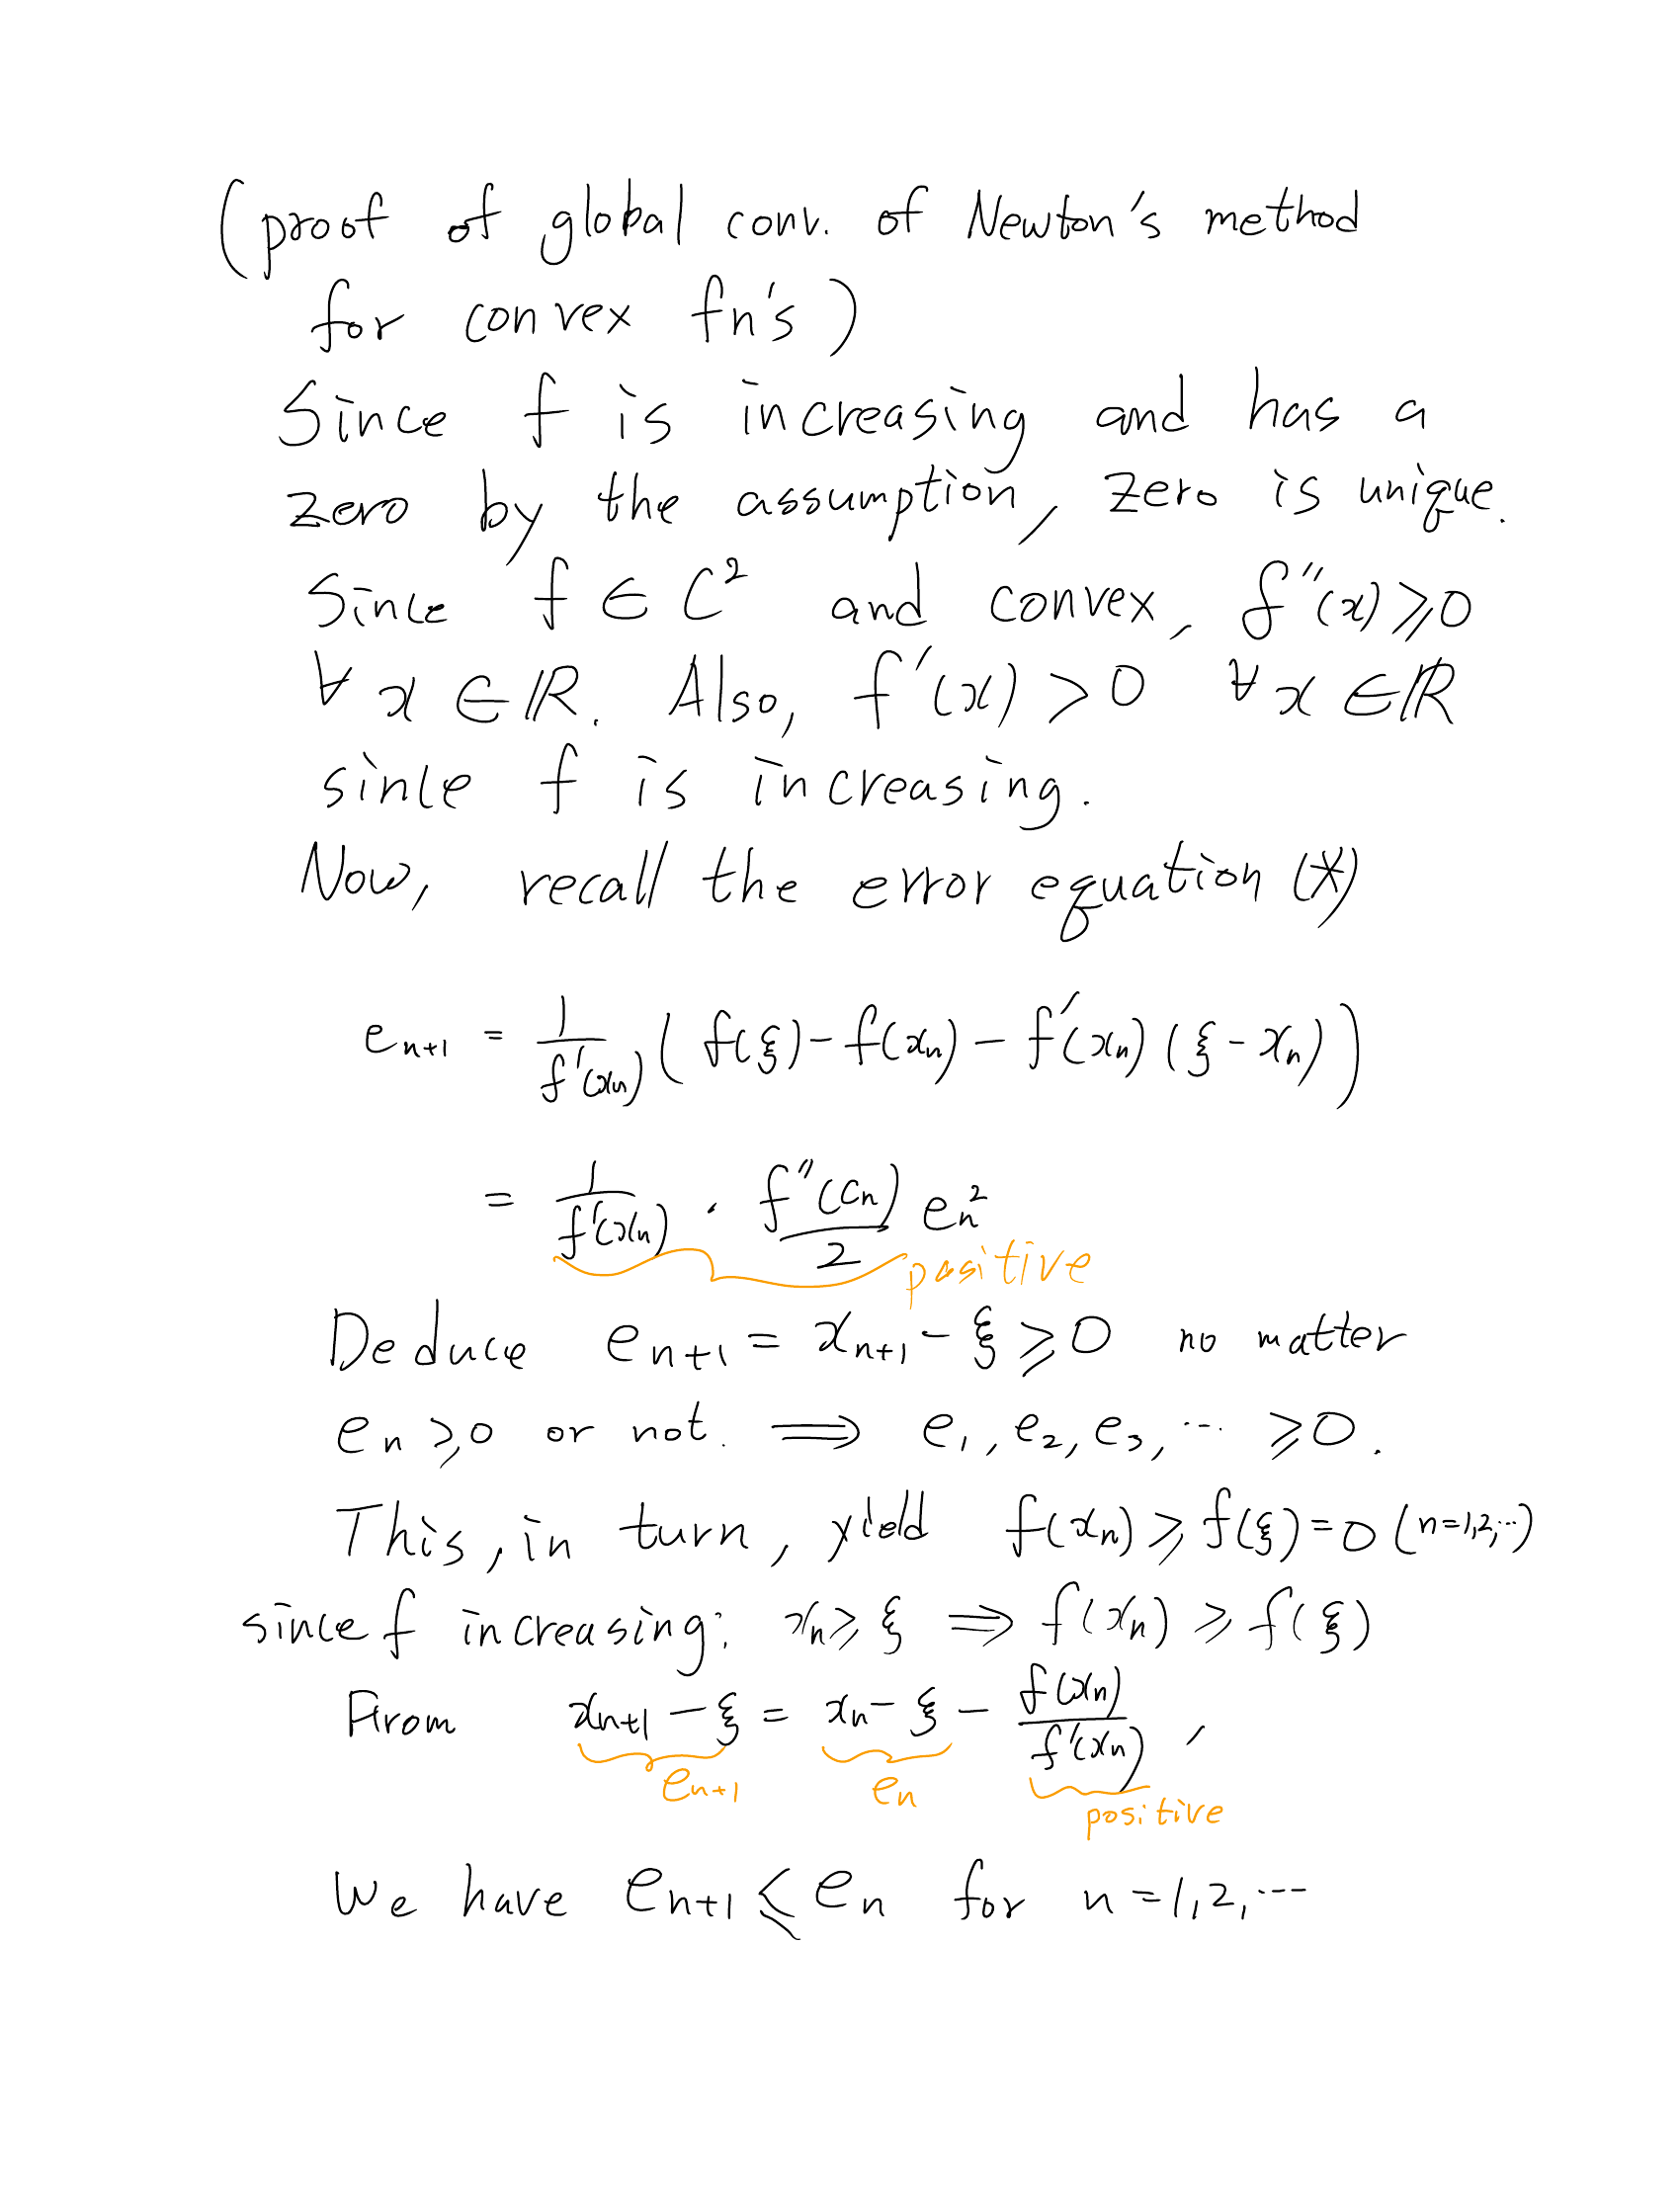 (proof of global conv. of Newton's method
for convex fn's)
Since f is increasing and has a
zero by the assumption, zero is unique.
Since f ∈ C² and convex, f''(x) ≥ 0
∀ x ∈ ℝ. Also, f'(x) > 0 ∀ x ∈ ℝ
since f is increasing.
Now, recall the error equation (*)
e_{n+1} = \frac{1}{f'(x_n)} ( f(ξ) - f(x_n) - f'(x_n) (ξ - x_n) )
= \frac{1}{f'(x_n)} · \frac{f''(c_n)}{2} e_n^2
positive
Deduce e_{n+1} = x_{n+1} - ξ ≥ 0 no matter
e_n ≥ 0 or not. ⟹ e_1, e_2, e_3, ⋯ ≥ 0.
This, in turn, yield f(x_n) ≥ f(ξ) = 0 (n=1,2,⋯)
since f increasing: x_n ≥ ξ ⟹ f(x_n) ≥ f(ξ)
From x_{n+1} - ξ = x_n - ξ - \frac{f(x_n)}{f'(x_n)},
e_{n+1} e_n positive
We have e_{n+1} ≤ e_n for n = 1, 2, ⋯